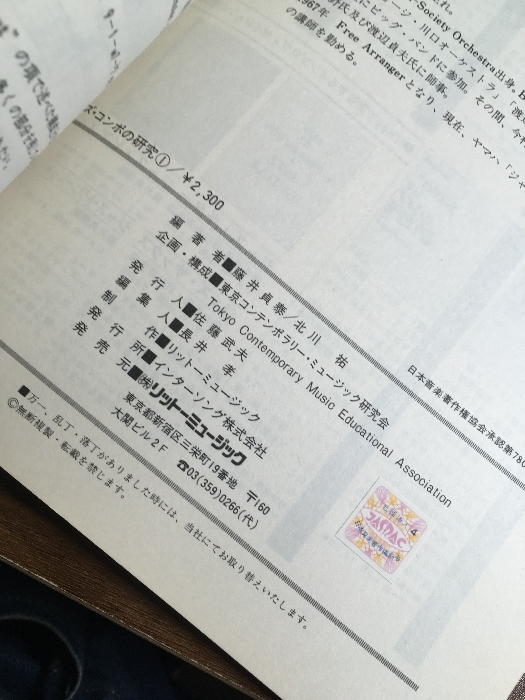 れ。
Society Orchestra出身。
ージ・川口オーケストラ」「渡
にビッグ・バンドに参加。その間、今村
氏及び渡辺貞夫氏に師事。
967年、Free Arrangerとなり、現在、ヤマハ「ジャ
の講師を勤める。
ズ・コンボの研究①／￥2,300
編著者■藤井貞泰／北川　祐
企画・構成■東京コンテンポラリー・ミュージック研究会
Tokyo Contemporary Music Educational Association
発行人■佐藤武夫
編集人■長井　孝
制作■リットーミュージック
発行所■インターソング株式会社
発売元■㈱リットーミュージック
東京都新宿区三栄町19番地　〒160
大関ビル2F　☎03(359)0266(代)
日本音楽著作権協会承認第780
JASRAC
4
■万一、乱丁・落丁がありました時には、当社にてお取り替えいたします。
©無断複製・転載を禁じます。